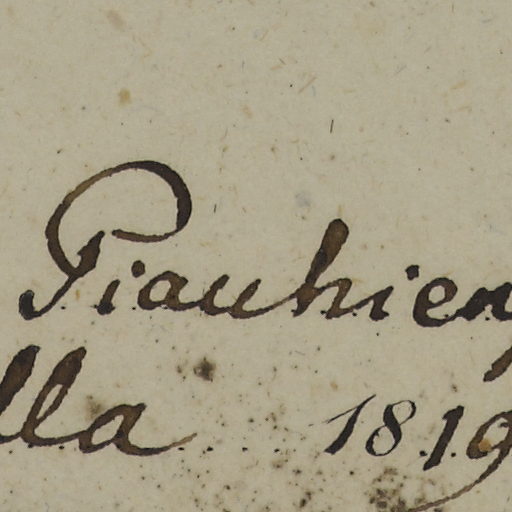 Piauhien
lla 1819